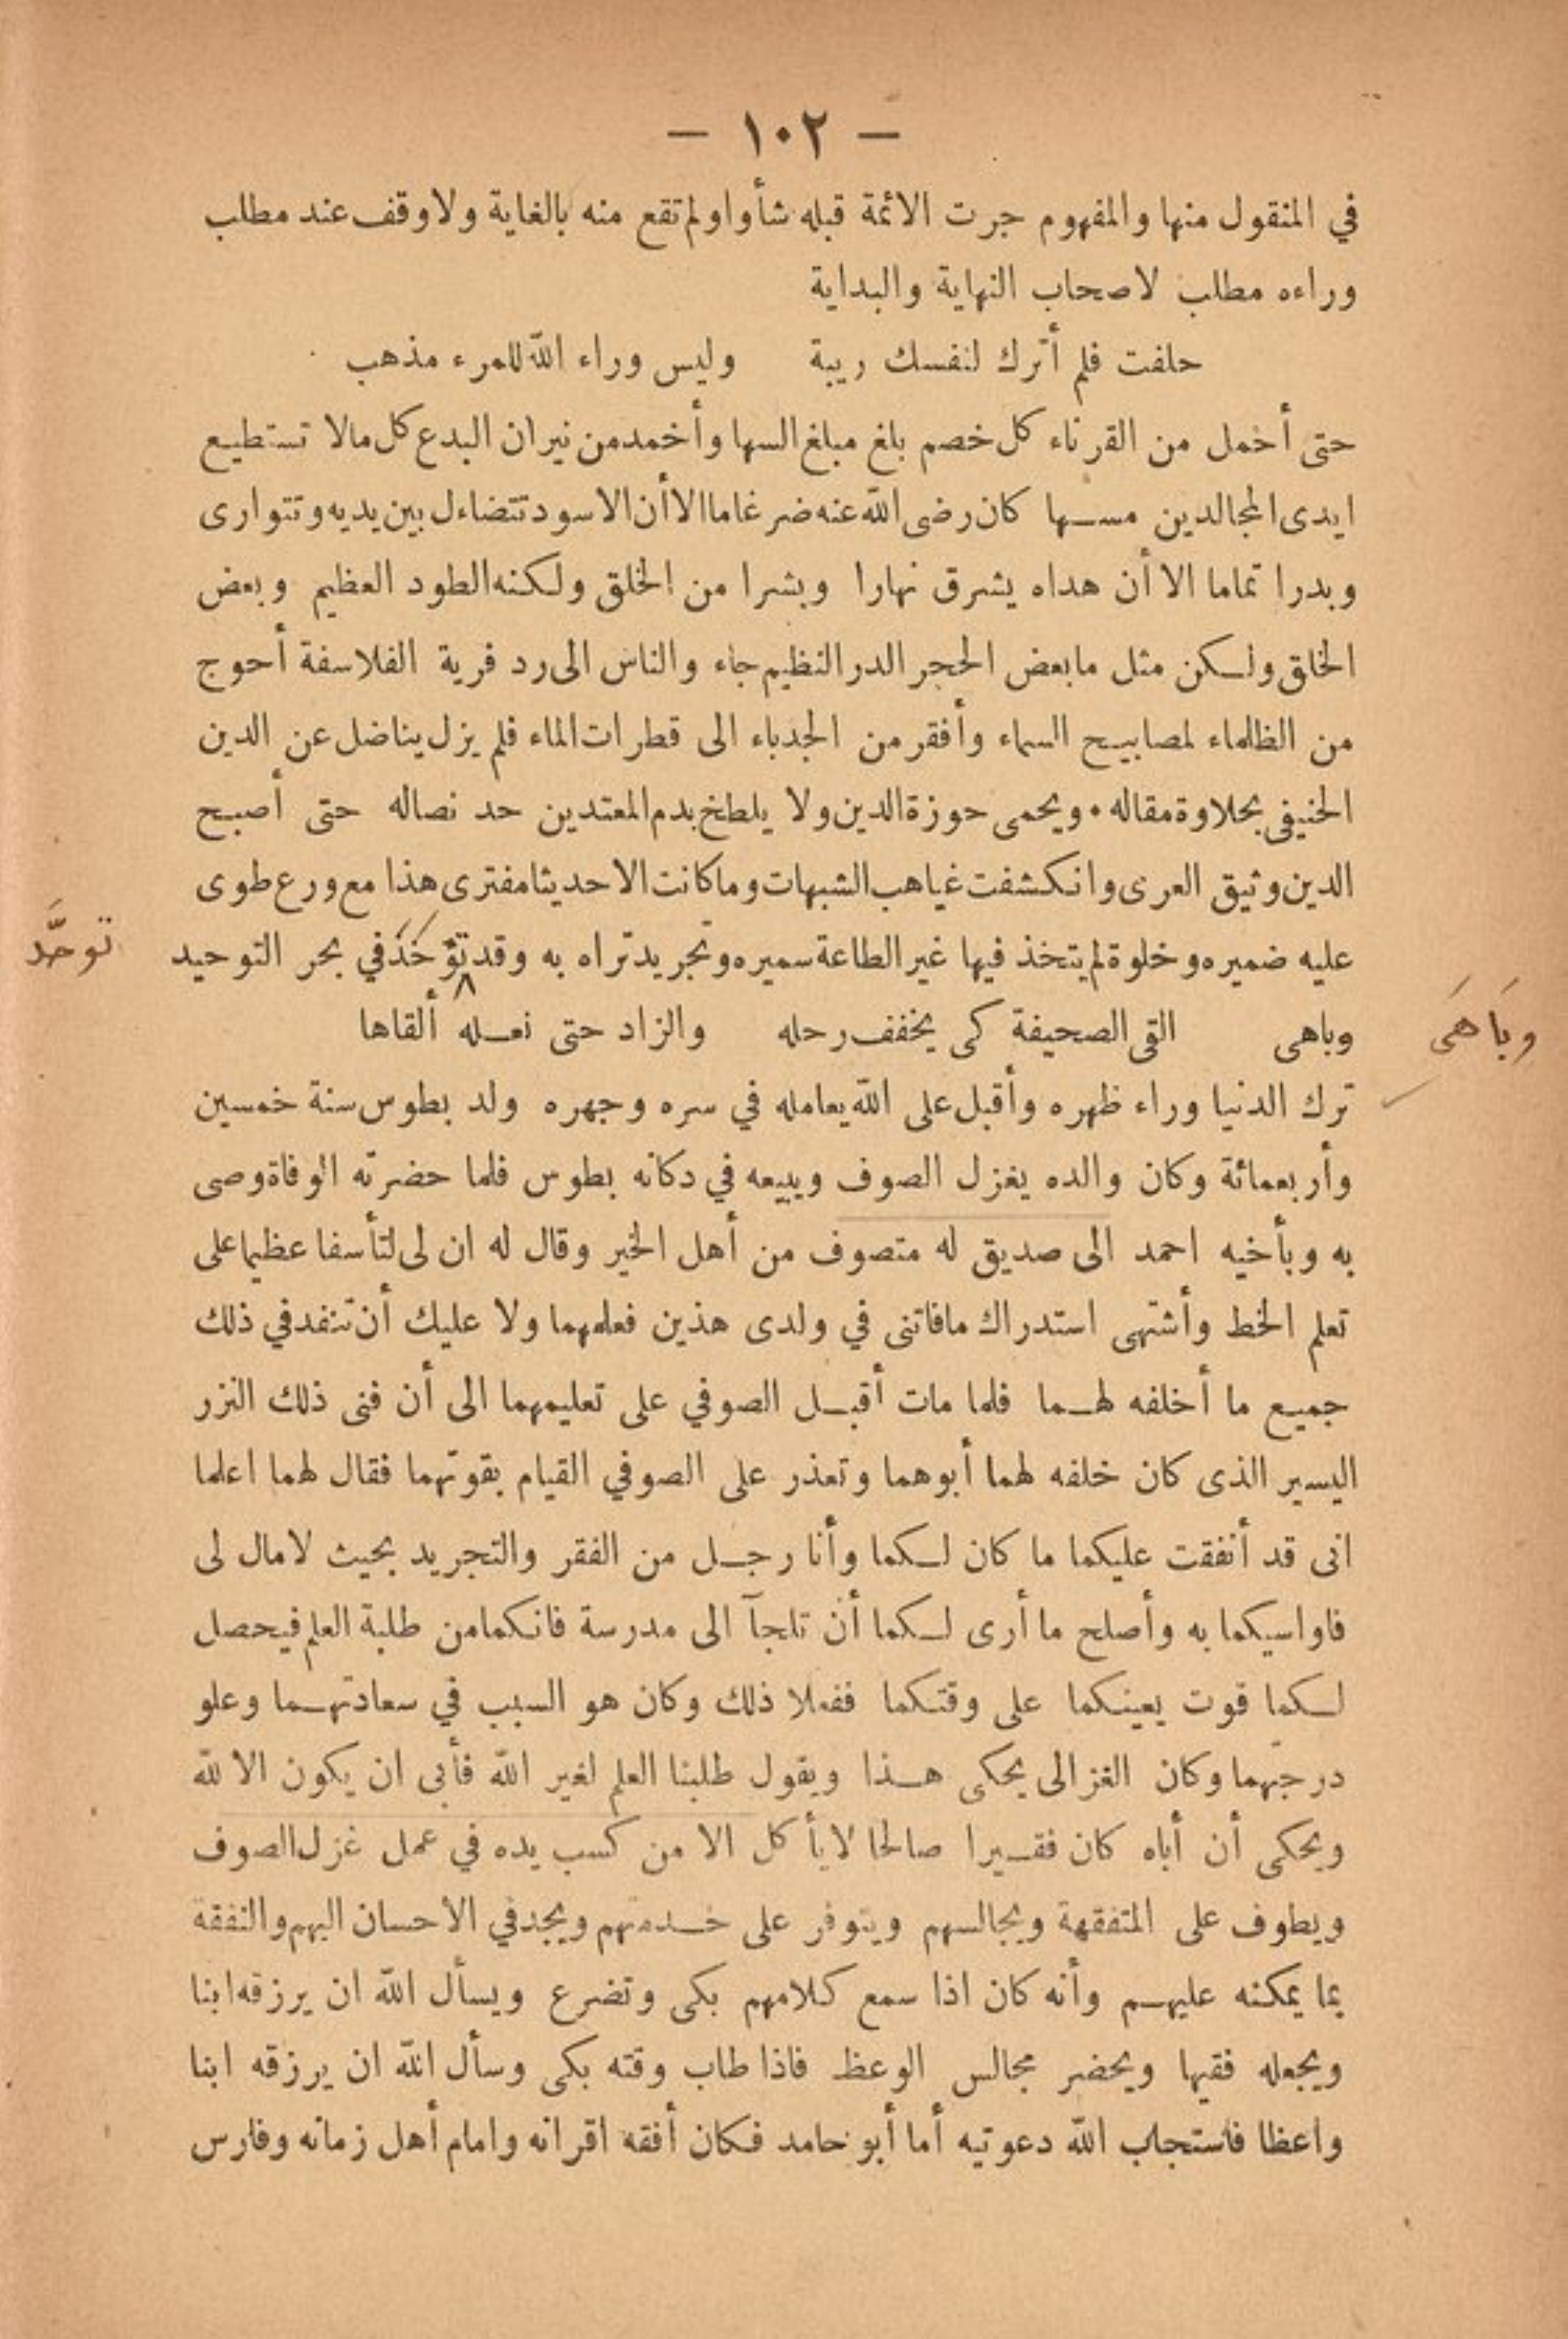 — ١٠٢ —
في المنقول منها والمفهوم جرت الائمة قبله شأوا ولم تقع منه بالغاية ولا وقف عند مطلب
وراءه مطلب لاصحاب النهاية والبداية
حلفت فلم أترك لنفسك ريبة وليس وراء الله للمرء مذهب
حتى أخمل من القرناء كل خصم بلغ مبلغ السها وأخمد من نيران البدع كل مالا تستطيع
ايدى المجالدين مسها كان رضى الله عنه ضرغاما الا أن الاسود تتضاءل بين يديه وتتوارى
وبدرا تماما الا أن هداه يشرق نهارا وبشرا من الخلق ولكنه الطود العظيم وبعض
الخلق ولكن مثل ما بعض الحجر الدر النظيم جاء والناس الى رد فرية الفلاسفة أحوج
من الظلماء لمصابيح السماء وأفقر من الجدباء الى قطرات الماء فلم يزل يناضل عن الدين
الحنيفى بحلاوة مقاله . ويحمى حوزة الدين ولا يلطخ بدم المعتدين حد نصاله حتى أصبح
الدين وثيق العرى وانكشفت غياهب الشبهات وما كانت الا حديثا مفترى هذا مع ورع طوى
عليه ضميره وخلوة لم يتخذ فيها غير الطاعة سميره وتجريد تراه به وقد في بحر التوحيد توحَّد
وباهى القى الصحيفة كى يخفف رحله والزاد حتى نعله ألقاها وبَاهَى
ترك الدنيا وراء ظهره وأقبل على الله يعامله في سره وجهره ولد بطوس سنة خمسين
وأربعمائة وكان والده يغزل الصوف ويبيعه في دكانه بطوس فلما حضرته الوفاة وصى
به وبأخيه احمد الى صديق له متصوف من أهل الخير وقال له ان لى لتأسفا عظيما على
تعلم الخط وأشتهى استدراك مافاتنى في ولدى هذين فعلمهما ولا عليك أن تنفد في ذلك
جميع ما أخلفه لهما فلما مات أقبل الصوفي على تعليمهما الى أن فنى ذلك النزر
اليسير الذى كان خلفه لهما أبوهما وتعذر على الصوفي القيام بقوتهما فقال لهما اعلما
انى قد أنفقت عليكما ما كان لكما وأنا رجل من الفقر والتجريد بحيث لامال لى
فاواسيكما به وأصلح ما أرى لكما أن تلجآ الى مدرسة فانكما من طلبة العلم فيحصل
لكما قوت يعينكما على وقتكما ففعلا ذلك وكان هو السبب في سعادتهما وعلو
درجتهما وكان الغزالى يحكى هذا ويقول طلبنا العلم لغير الله فأبى ان يكون الا لله
ويحكى أن أباه كان فقيرا صالحا لايأكل الا من كسب يده في عمل غزل الصوف
ويطوف على المتفقهة ويجالسهم ويتوفر على خدمتهم ويجد في الاحسان اليهم والنفقة
بما يمكنه عليهم وأنه كان اذا سمع كلامهم بكى وتضرع ويسأل الله ان يرزقه ابنا
ويجعله فقيها ويحضر مجالس الوعظ فاذا طاب وقته بكى وسأل الله ان يرزقه ابنا
واعظا فاستجاب الله دعوتيه أما أبو حامد فكان أفقه اقرانه وامام أهل زمانه وفارس